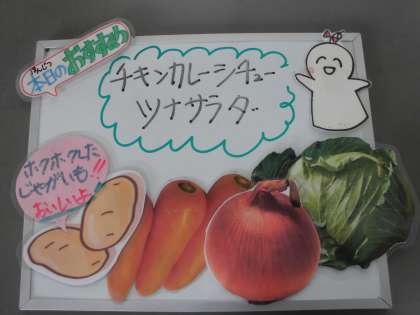 ほんじつ
本日のおすすめ
チキンカレーシチュー
ツナサラダ
ホクホクした
じゃがいも!!
おいしいよ